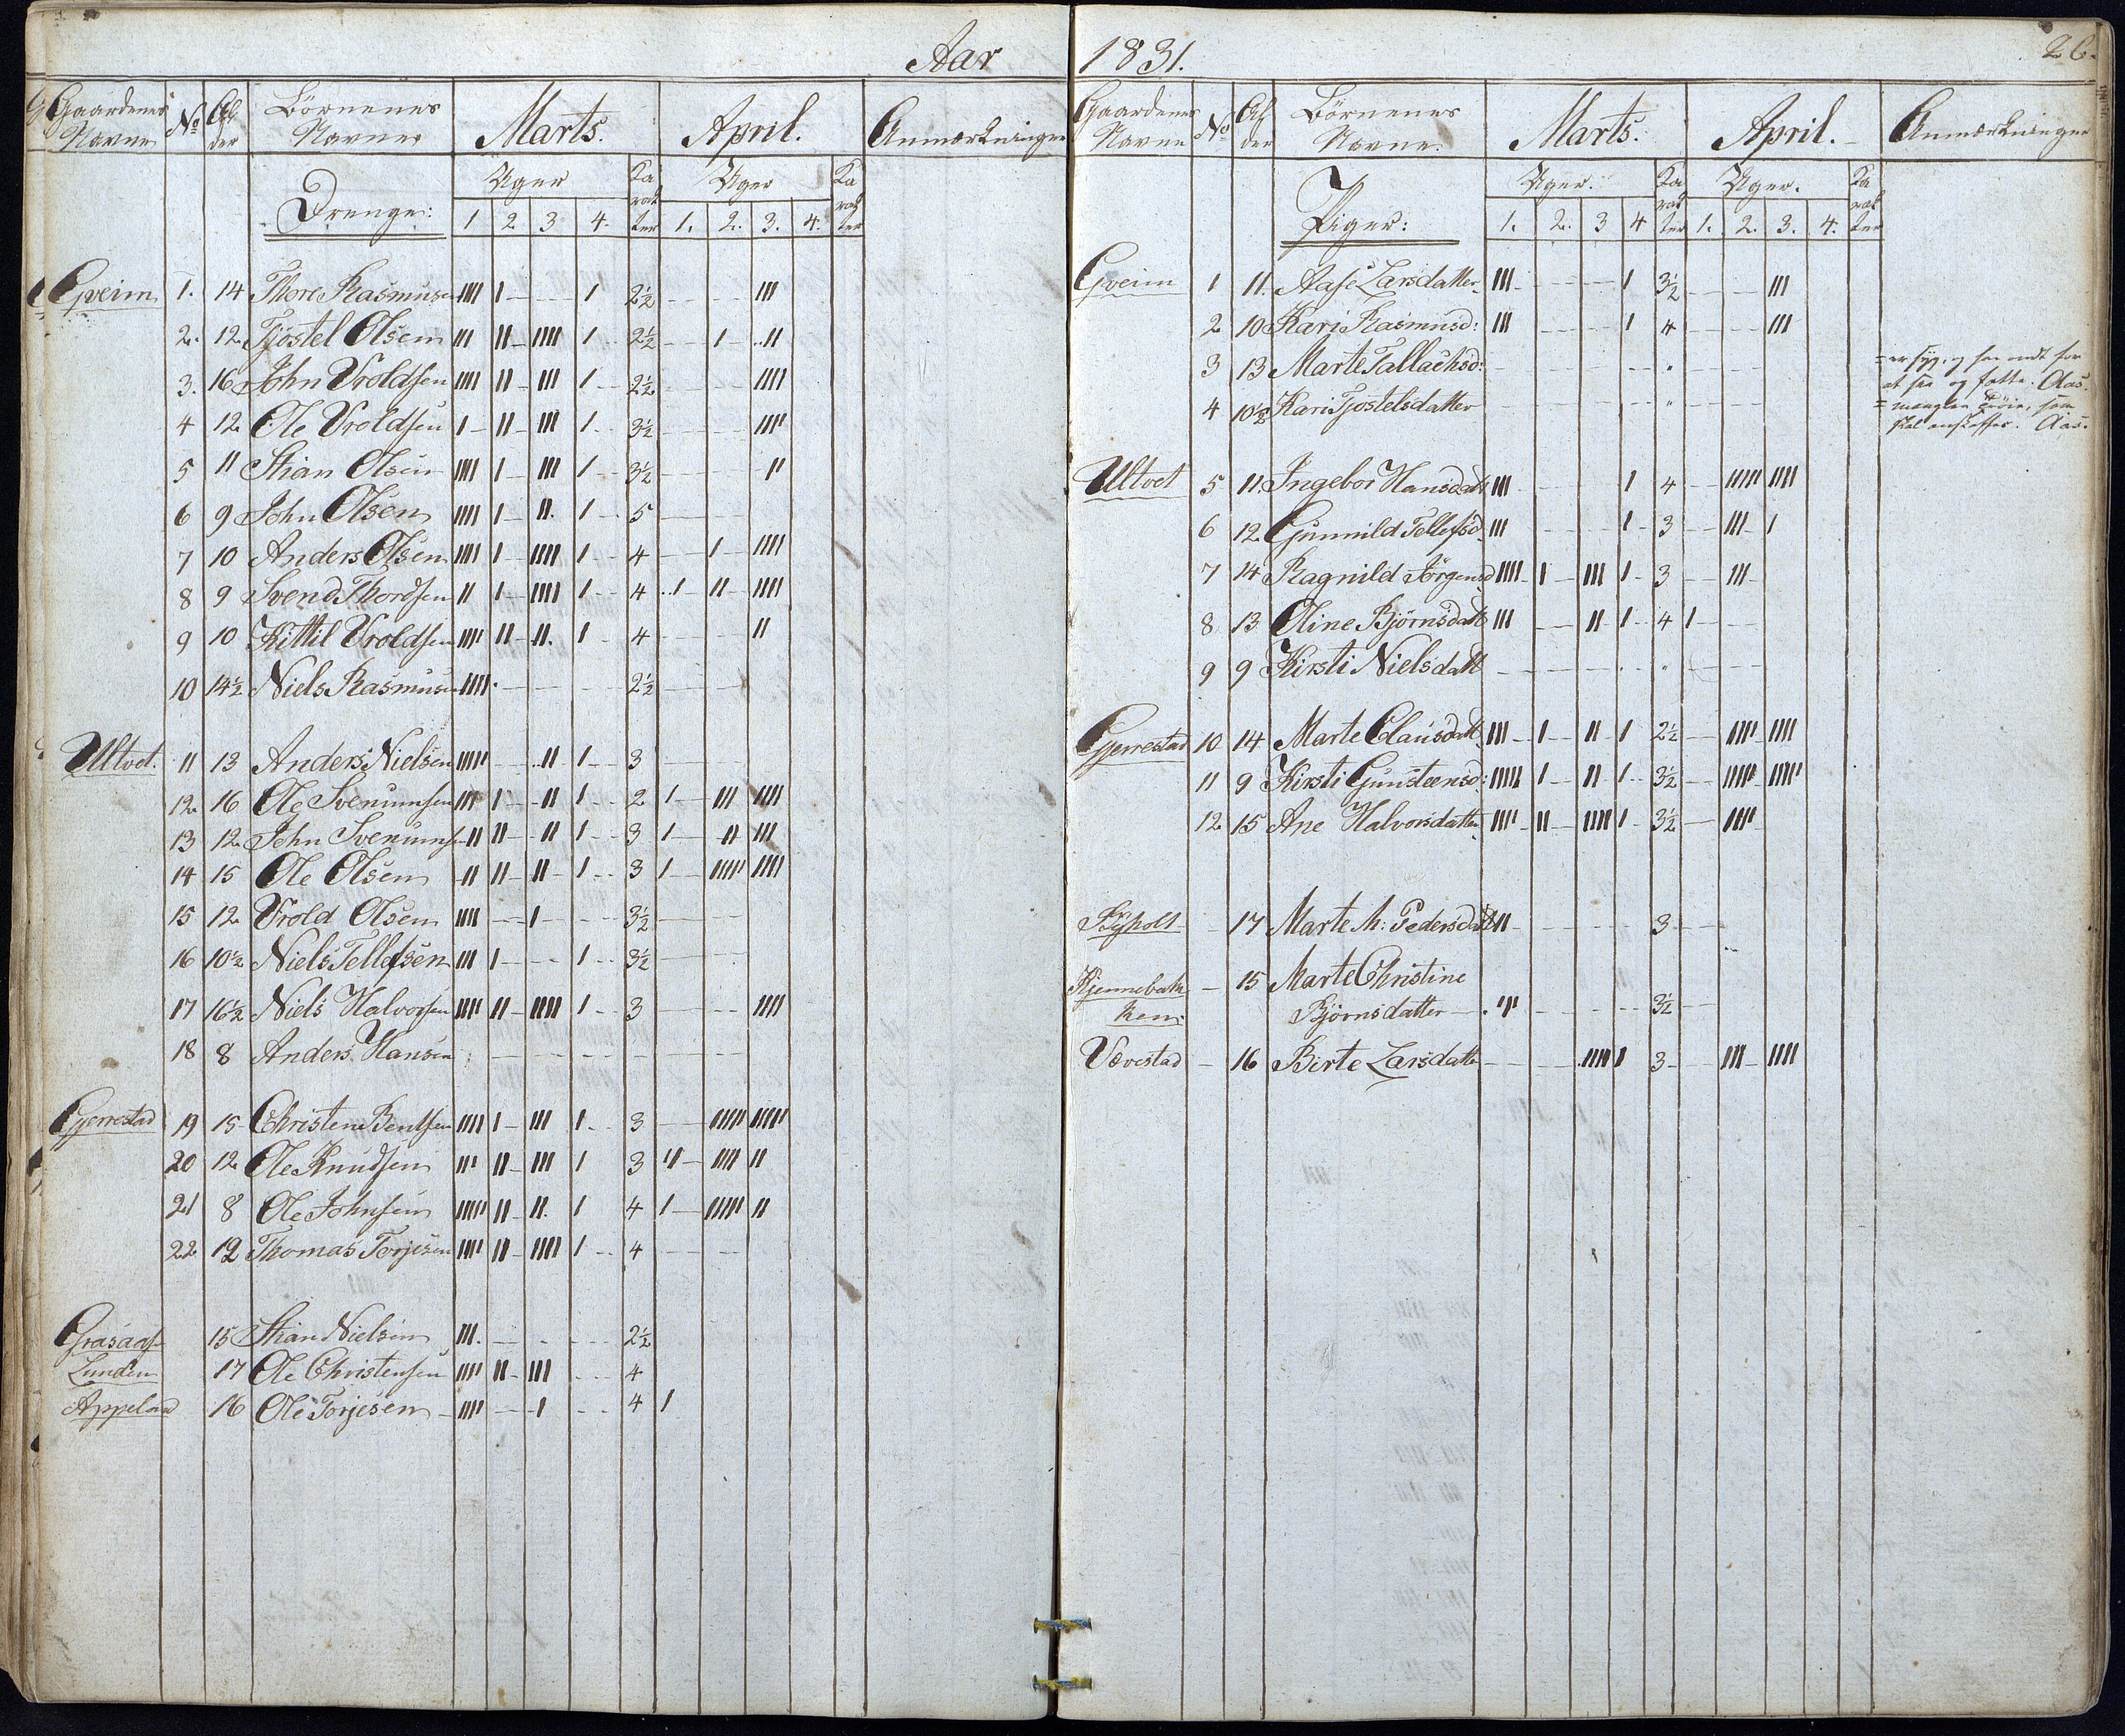 Aar
Gaardenes Navne No Alder Börnenes Navne Marts. April. Anmærkninger
Drenge: Uger Karakter Uger Karakter
1 2 3 4. 1. 2. 3. 4.
Gveim 1. 14 Thore Rasmusen IIII I I 2½ III
2. 12. Tjöstel Olsen III II IIII I 2½ I II
3. 16 John Uroldsen IIII II III I 2½ IIII
4 12 Ole Uroldsen I II III I 3½ IIII
5 11 Stian Olsen IIII I III I 3½ II
6 9 John Olsen IIII I II. I 5
7 10 Anders Olsen IIII I IIII I 4 I IIII
8 9 Svend Thordsen II I IIII I 4 I II IIII
9 10 Kittil Uroldsen IIII II II. I 4 II
10 14½ Niels Rasmusen IIII. 2½
Ultvet. 11 13 Anders Nielsen IIIII II I 3
12 16 Ole Svenumsen III I II I 2 I III IIII
13 12 John Svenumsen II II II I 3 I II III
14 15 Ole Olsen II II II I 3 I IIIII IIII
15 12 Urold Olsen IIII I 3½
16 10½ Niels Tellefsen III I I 3½
17 16½ Niels Halvorsen IIII II IIII I 3 IIII
18 8 Anders Hansen
Gjerrestad 19 15 Christen Bentsen IIII I III I 3 IIIII IIIII
20 12 Ole Knudsen III II III I 3 II IIII II
21 8 Ole Johnsen IIIII II II. I 4 I IIIII II
22 12 Thomas Torjesen IIII II IIII I 4
Grasaas 15 Stian Nielsen III. 2½
Lunden 17 Ole Christensen IIII II III 4
Appelaa 16 Ole Torjesen IIII I 4 I
1831.
26.
Gaardenes Navne No Alder Börnenes Navne. Marts. April. Anmærkninger
Piger: Uger. Karakter Uger. Karakter
1. 2. 3 4 1. 2. 3. 4.
Gveim 1 11. Aase Larsdatter III I 3½ III
2 10 Kari Rasmusd: III I 4 III
3 13 Marte Tallachsd: = er syg, og har ondt for
at see og fatte. Aas.
4 10½ Kari Tjostelsdatter = mangler som
skal anskaffes. Aas.
Ultvet 5 11. Ingebor Hansdatt III I 4 IIIII IIII
6 12. Gunnild Tellefsd. III I 3 III I
7 14 Ragnild Jörgensd IIII I III I 3 III
8 13 Oline Björnsdatt III II I 4 I
9 9 Kirsti Nielsdatt
Gjerrestad 10 14 Marte Clausdatt III I II I 2½ IIII IIII
11 9 Kirsti Gunsteensd: IIIII I II I 3½ IIIII IIIII
12 15 Ane Halvorsdatter IIII II IIII I 3½ IIII
17 Marte M: Pedersdatt II 3
Kjennebak
ken 15 Marte Christine
Björnsdatter II 3½
Vævestad 16 Birte Larsdatter IIII I 3 III IIII